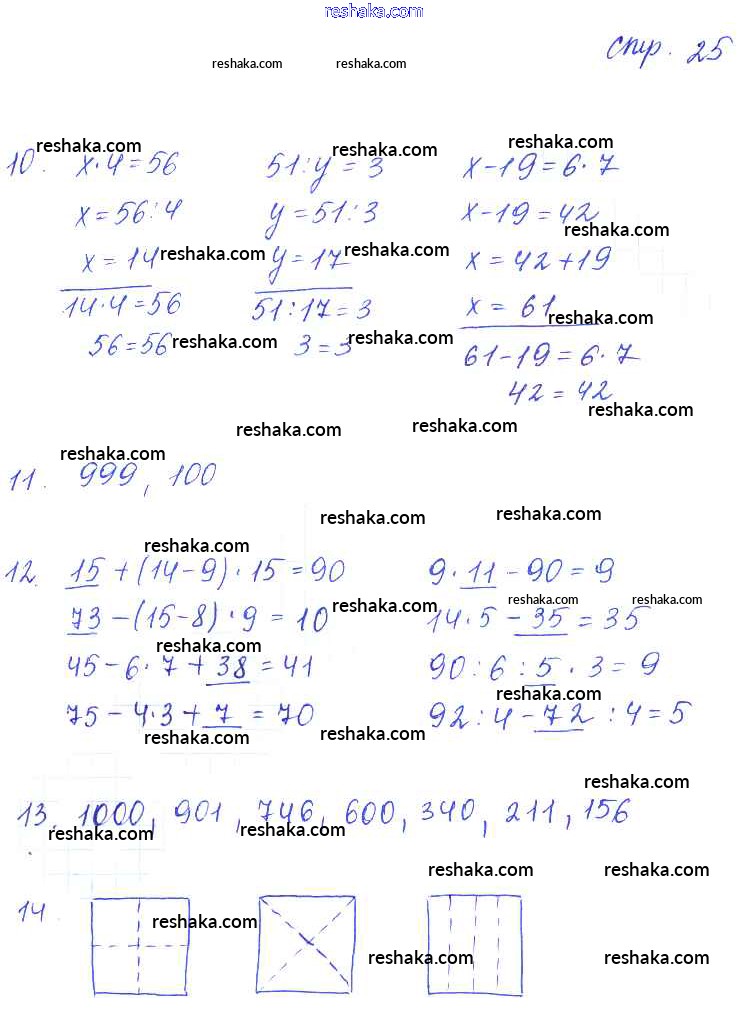 reshaka.com
стр. 25
reshaka.com reshaka.com
reshaka.com reshaka.com reshaka.com
10. x·4=56 51:y=3 x-19=6·7
x=56:4 y=51:3 x-19=42
reshaka.com reshaka.com reshaka.com
x=14 y=17 x=42+19
14·4=56 51:17=3 x=61
reshaka.com reshaka.com reshaka.com
56=56 3=3 61-19=6·7
42=42
reshaka.com reshaka.com reshaka.com
reshaka.com
11. 999, 100
reshaka.com reshaka.com
reshaka.com
12. 15+(14-9)·15=90 9·11-90=9
reshaka.com reshaka.com reshaka.com
73-(15-8)·9=10 14·5-35=35
reshaka.com
45-6·7+38=41 90:6:5·3=9
reshaka.com
75-4·3+7=70 92:4-72:4=5
reshaka.com reshaka.com
reshaka.com
13. 1000, 901, 746, 600, 340, 211, 156
reshaka.com reshaka.com
reshaka.com reshaka.com
14.
reshaka.com reshaka.com
reshaka.com reshaka.com